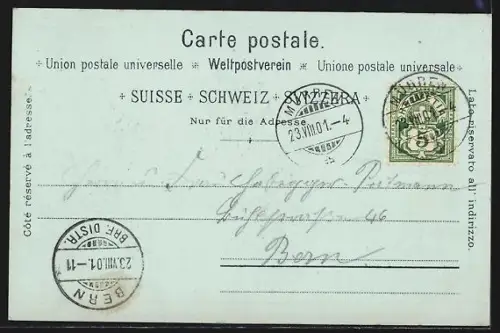 Carte postale.
Union postale universelle Weltpostverein Unione postale universale
SUISSE SCHWEIZ SVIZZERA
Nur für die Adresse
Côté réservé à l'adresse.
Lato riservato all' indirizzo.
MÜRREN
23.VIII.01.-4
MÜRREN
23.VIII.01.-4
5
Bühlstrasse 46
Bern
BRF. DISTR.
23.VIII.01.-11
BERN